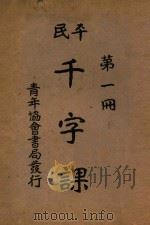 平民
千字課
第一冊
青年協會書局發行